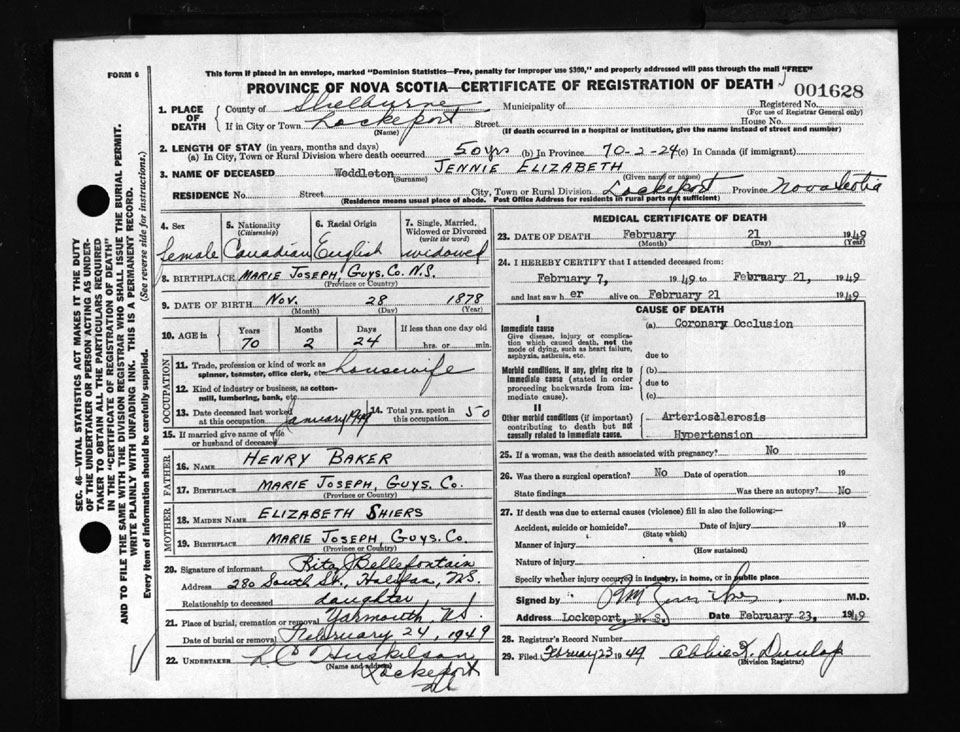 FORM 6
This form if placed in an envelope, marked "Dominion Statistics—Free, penalty for improper use $300," and properly addressed will pass through the mail "FREE"
PROVINCE OF NOVA SCOTIA—CERTIFICATE OF REGISTRATION OF DEATH
001628
1. PLACE OF DEATH
County of Shelburne Municipality of Registered No.
(For use of Registrar General only)
If in City or Town Lockeport Street House No.
(Name) (If death occurred in a hospital or institution, give the name instead of street and number)
2. LENGTH OF STAY (in years, months and days)
(a) In City, Town or Rural Division where death occurred 50 yrs (b) In Province 70-2-24 (c) In Canada (if immigrant)
3. NAME OF DECEASED Weddleton JENNIE ELIZABETH
(Surname) (Given name or names)
RESIDENCE No. Street City, Town or Rural Division Lockeport Province Nova Scotia
(Residence means usual place of abode. Post Office Address for residents in rural parts not sufficient)
4. Sex 5. Nationality (Citizenship) 6. Racial Origin 7. Single, Married, Widowed or Divorced (write the word)
female Canadian English widowed
8. BIRTHPLACE MARIE JOSEPH, GUYS. CO. N.S.
(Province or Country)
9. DATE OF BIRTH Nov. 28 1878
(Month) (Day) (Year)
10. AGE in Years Months Days If less than one day old
70 2 24 hrs. or min.
OCCUPATION
11. Trade, profession or kind of work as spinner, teamster, office clerk, etc. housewife
12. Kind of industry or business, as cotton-mill, lumbering, bank, etc.
13. Date deceased last worked at this occupation January 1949 14. Total yrs. spent in this occupation 50
15. If married give name of wife or husband of deceased
FATHER
16. NAME HENRY BAKER
17. BIRTHPLACE MARIE JOSEPH, GUYS. CO.
(Province or Country)
MOTHER
18. MAIDEN NAME ELIZABETH SHIERS
19. BIRTHPLACE MARIE JOSEPH, GUYS. CO.
(Province or Country)
20. Signature of informant Rita J Bellefontain
Address 280 South St., Halifax, N.S.
Relationship to deceased daughter
21. Place of burial, cremation or removal Yarmouth, N.S.
Date of burial or removal February 24, 1949
22. UNDERTAKER L C Huskilson
(Name and address)
Lockeport
NS
MEDICAL CERTIFICATE OF DEATH
23. DATE OF DEATH February 21 1949
(Month) (Day) (Year)
24. I HEREBY CERTIFY that I attended deceased from:
February 7, 1949 to February 21, 1949
and last saw h er alive on February 21 1949
CAUSE OF DEATH
I
Immediate cause (a) Coronary Occlusion
Give disease, injury or complication which caused death, not the mode of dying, such as heart failure, asphyxia, asthenia, etc.
due to
Morbid conditions, if any, giving rise to immediate cause (stated in order proceeding backwards from immediate cause).
(b)
due to
(c)
II
Other morbid conditions (if important) contributing to death but not causally related to immediate cause.
Arteriosclerosis
Hypertension
25. If a woman, was the death associated with pregnancy? No
26. Was there a surgical operation? No Date of operation 19
State findings Was there an autopsy? No
27. If death was due to external causes (violence) fill in also the following:—
Accident, suicide or homicide? Date of injury 19
(State which)
Manner of injury
(How sustained)
Nature of injury
Specify whether injury occurred in industry, in home, or in public place
Signed by M.D.
Address Lockeport, N. S. Date February 23, 1949
28. Registrar's Record Number
29. Filed February 23 1949 Abbie K. Dunlop
(Division Registrar)
SEC. 46—VITAL STATISTICS ACT MAKES IT THE DUTY
OF THE UNDERTAKER OR PERSON ACTING AS UNDER-
TAKER TO OBTAIN ALL THE PARTICULARS REQUIRED
IN THE "CERTIFICATE OF REGISTRATION OF DEATH"
AND TO FILE THE SAME WITH THE DIVISION REGISTRAR WHO SHALL ISSUE THE BURIAL PERMIT.
WRITE PLAINLY WITH UNFADING INK. THIS IS A PERMANENT RECORD.
Every item of information should be carefully supplied. (See reverse side for instructions.)